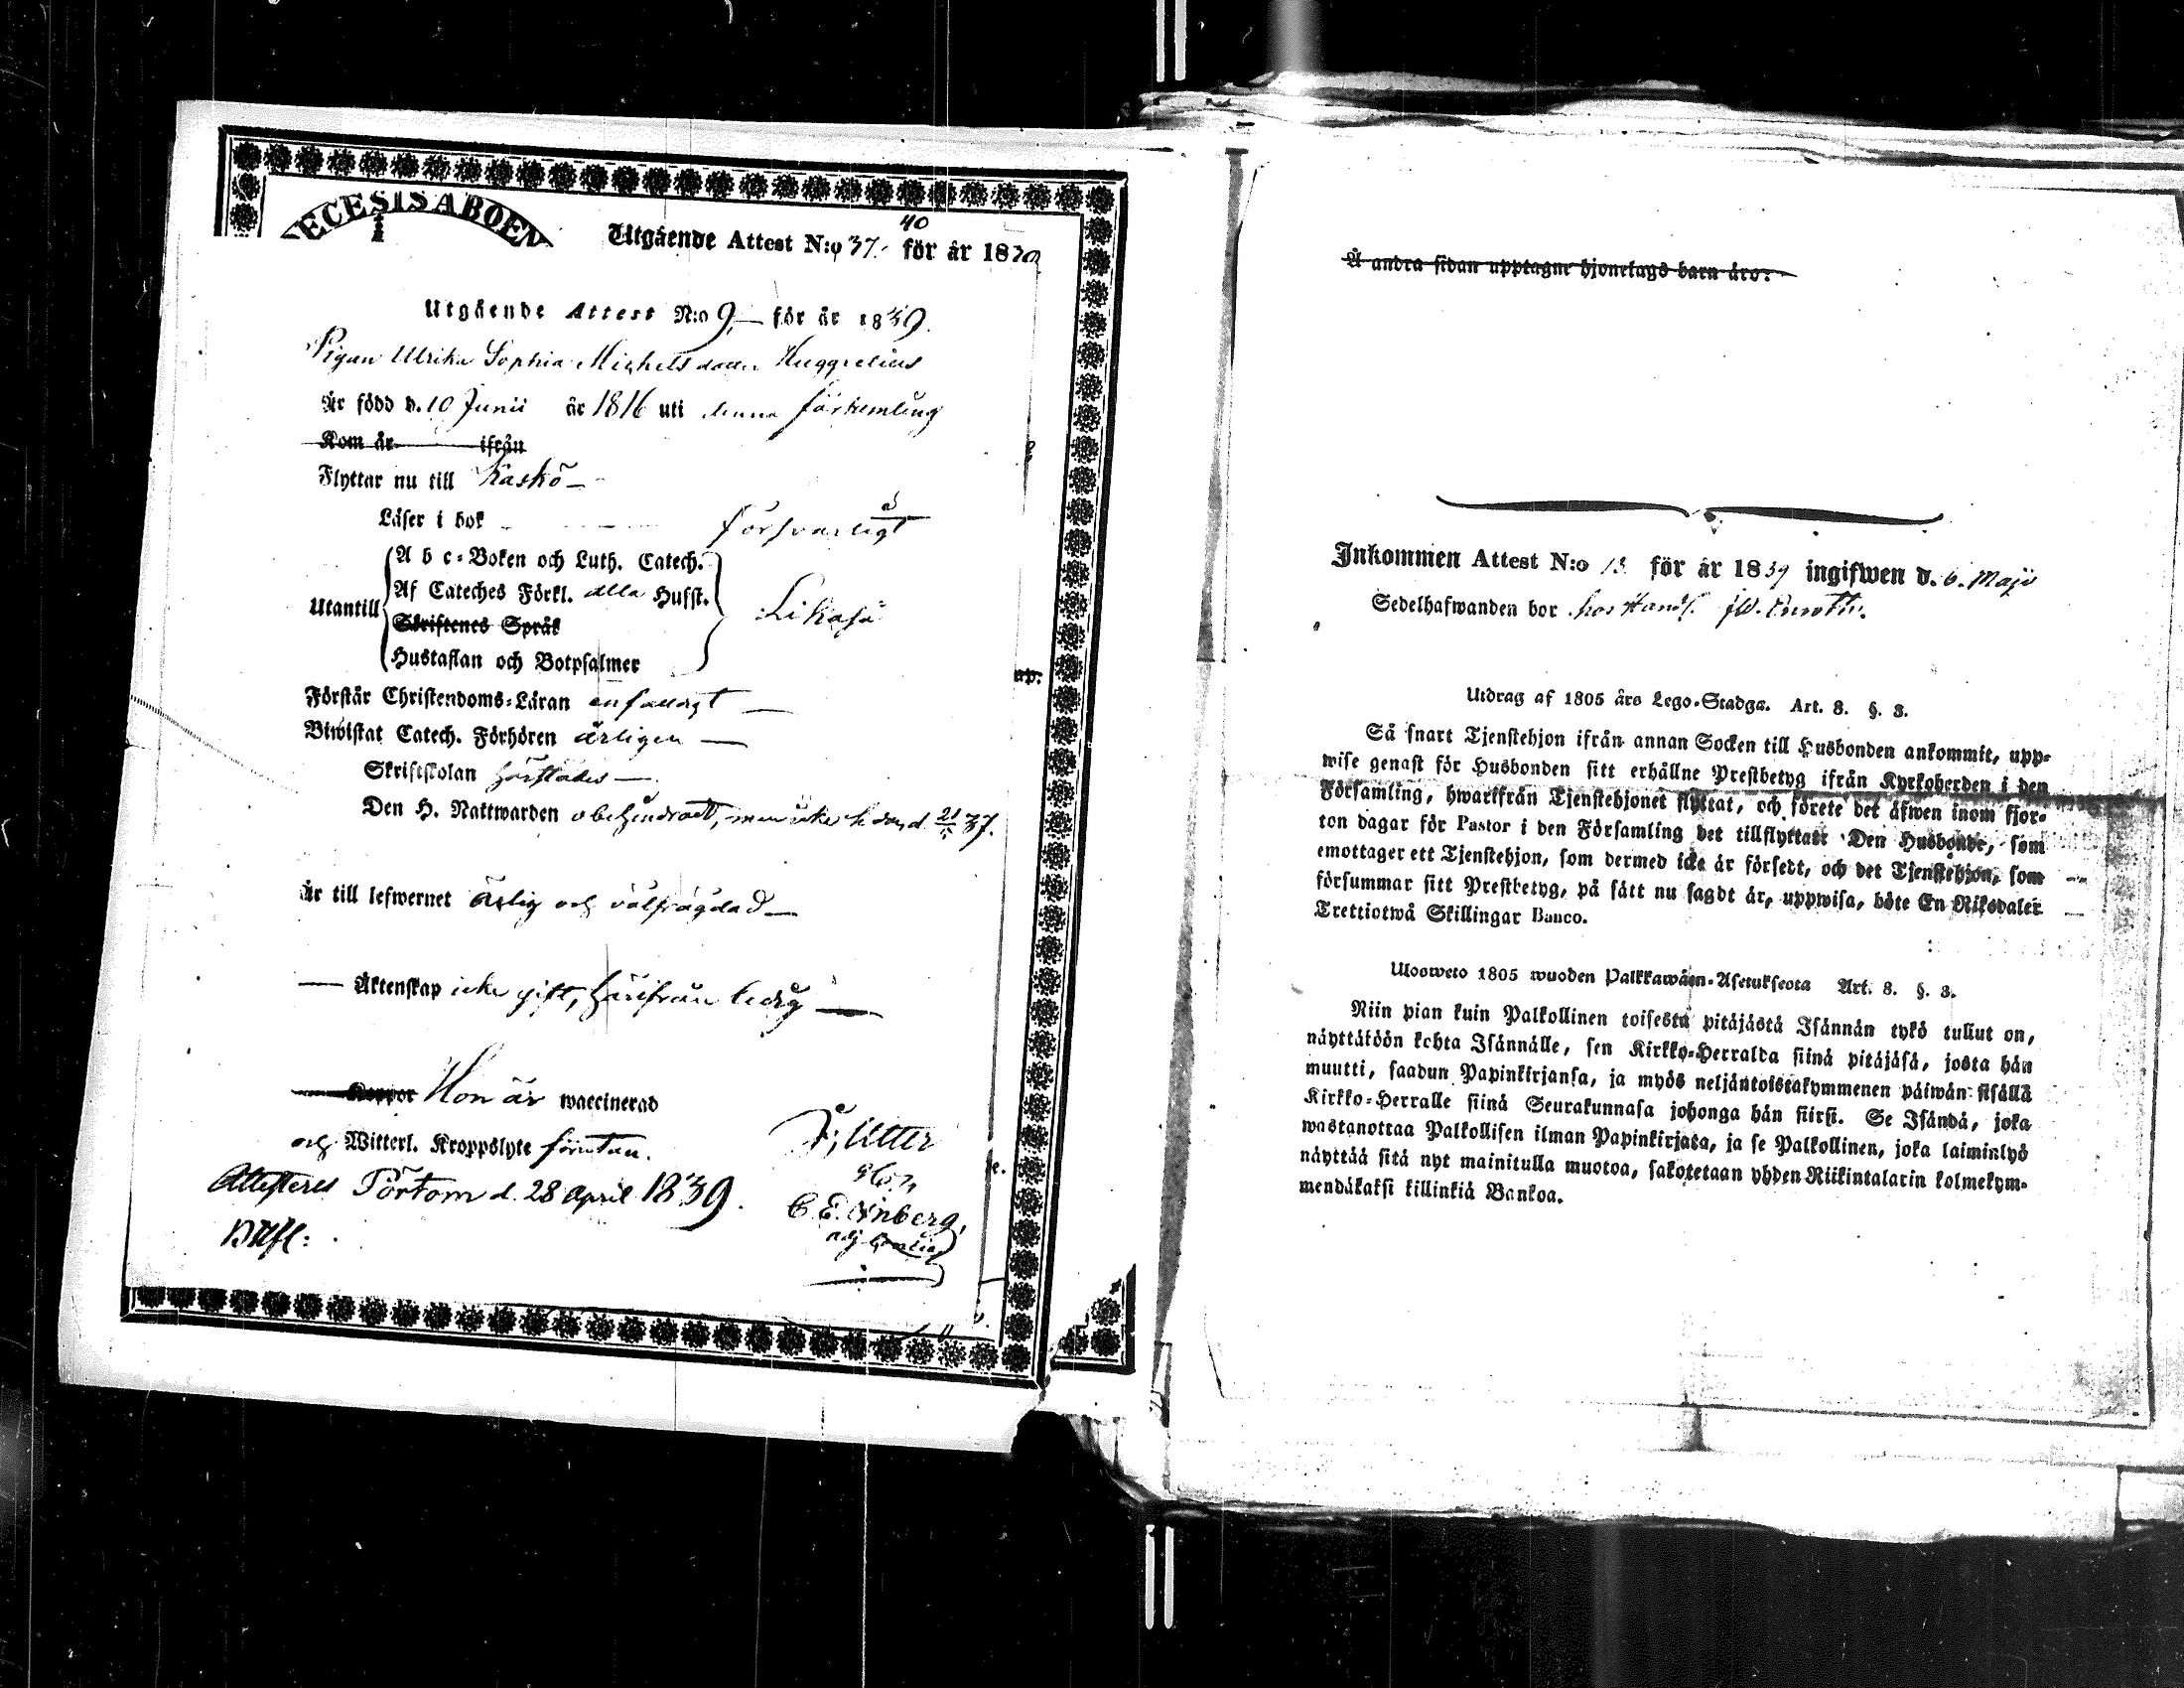 ECESIS ABOEN
Utgående Attest N:o 37. för år 18
40
Utgående Attest N:o 9, för år 1839.
Pigan Ulrika Sophia Michelsdotter Huggrelius
Är född d. 10 Junii år 1816 uti denna församling
Kom år ifrån
Flyttar nu till Kaskö
Läser i bok försvarligt
Utantill
A b c-Boken och Luth. Catech.
Af Cateches Förkl. alla Hufst.
Skriftenes Språk
Hustaflan och Botpsalmer
Likaså
Förstår Christendoms-Läran enfaldigt
Biwistat Catech. Förhören årligen
Skriftskolan härstädes
Den H. Nattwarden obehindradt, men icke sedan d. 37.
Är till lefwernet ärlig och välfrägdad
Äktenskap icke gift, härifrån ledig
Koppor Hon är waccinerad
och Witterl. Kroppslyte förutan.
Attesteres Pörtom d. 28 April 1839.
å
F; Utter
C. E.
up.
Å andra sidan upptagne hjonelags barn äro:
Inkommen Attest N:o 13 för år 1839 ingifwen d. 6. Maji
Sedelhafwanden bor hos Handl.
Utdrag af 1805 års Lego-Stadga. Art. 8. §. 3.
Så snart Tjenstehjon ifrån annan Socken till Husbonden ankommit, upp-
wise genast för Husbonden sitt erhållne Prestbetyg ifrån Kyrkoherden i den
Församling, hwarifrån Tjenstehjonet flyttat, och förete det äfwen inom fjor-
ton dagar för Pastor i den Församling det tillflyttatt Den Husbonde, som
emottager ett Tjenstehjon, som dermed icke är försedt, och det Tjenstehjon, som
försummar sitt Prestbetyg, på sätt nu sagdt är, uppwisa, böte En Riksdaler
Trettiotwå Skillingar Banco.
Ulosweto 1805 wuoden Palkkawäen-Asetuksesta Art. 8. §. 3.
Niin pian kuin Palkollinen toisesta pitäjästä Isännän tykö tullut on,
näyttätöön kohta Isännälle, sen Kirkko-Herralda siinä pitäjäsä, josta hän
muutti, saadun Papinkirjansa, ja myös neljäntoistakymmenen päiwän sisällä
Kirkko-Herralle siinä Seurakunnasa johonga hän siirsi. Se Isändä, joka
wastanottaa Palkollisen ilman Papinkirjasa, ja se Palkollinen, joka laiminlyö
näyttää sitä nyt mainitulla muotoa, sakotetaan yhden Riikintalarin kolmekym-
mendäkaksi killinkiä Bankoa.